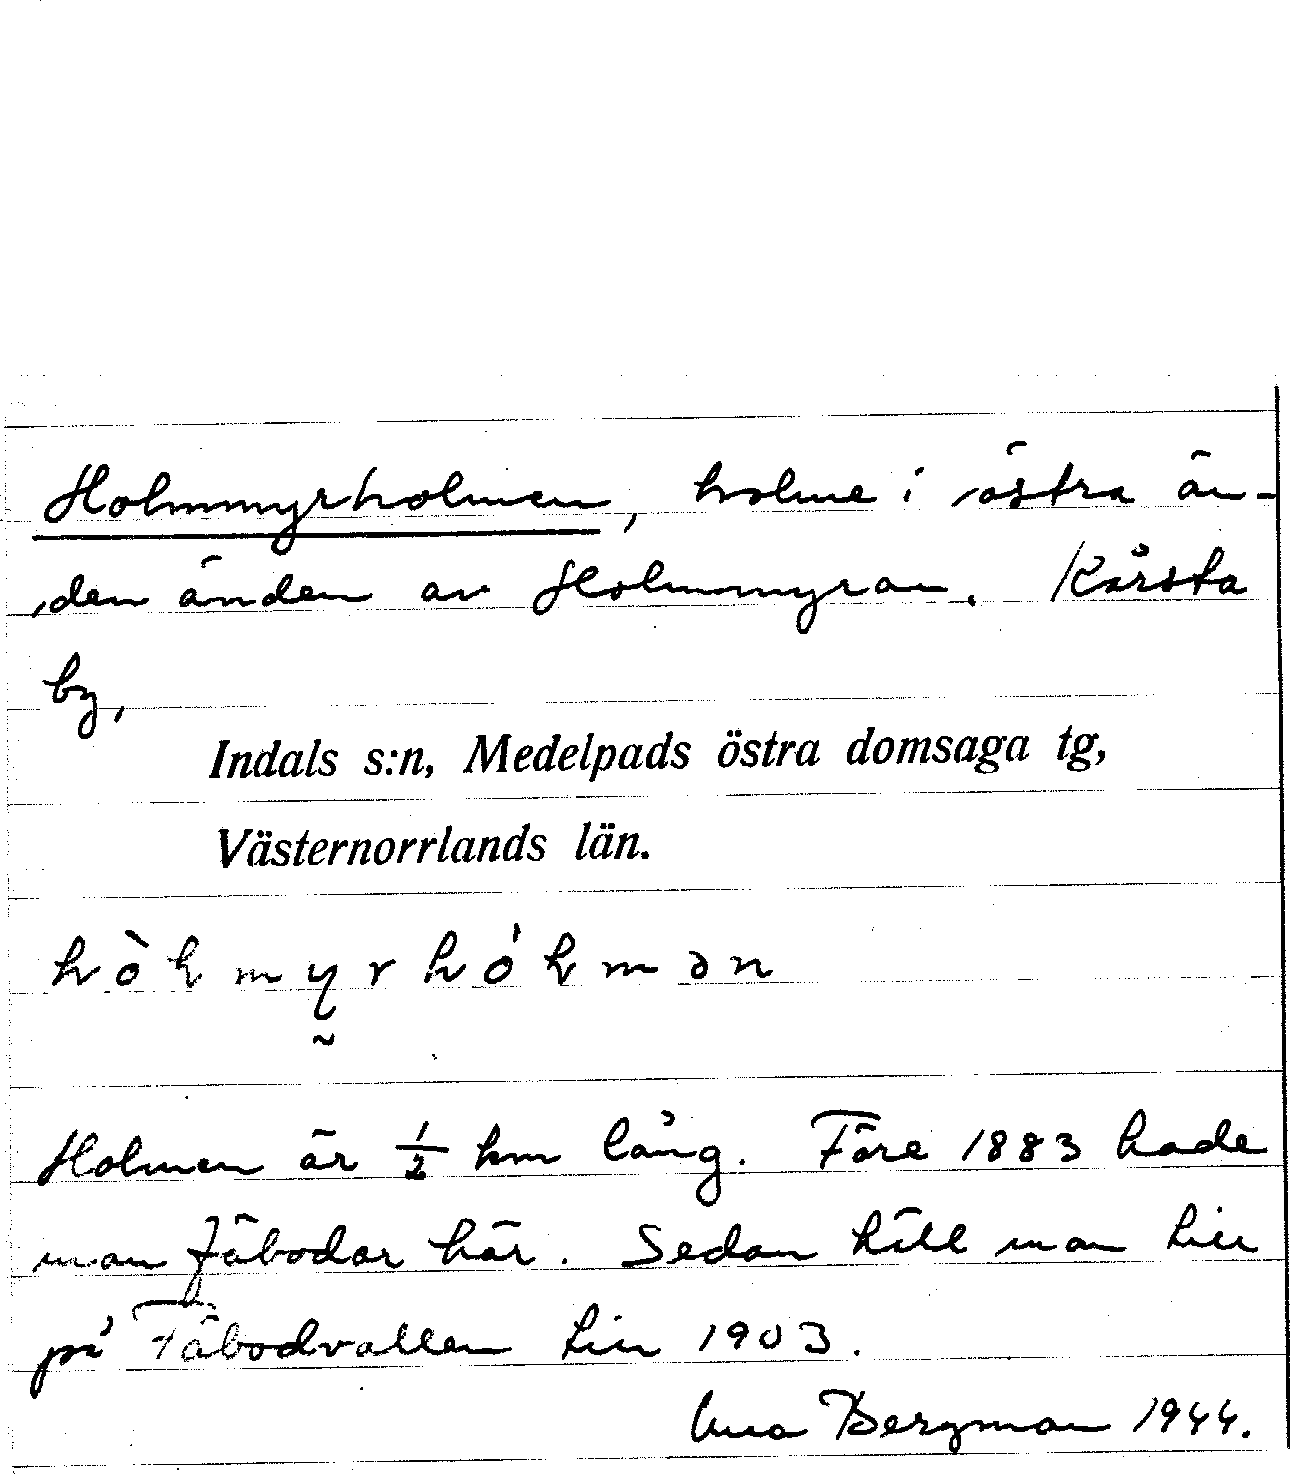 Holmmyrholmen, holme i östra än-
den änden av Holmmyran. Kårsta
by,
Indals s:n, Medelpads östra domsaga tg,
Västernorrlands län.
Holmen är 1/2 km lång. Före 1883 hade
man fäbodar här. Sedan höll man
på Fäbodvallen 1903.
Bergman 1944.